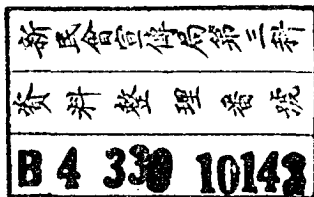 新民會宣傳局第三科
資料整理番號
B4 330 10142